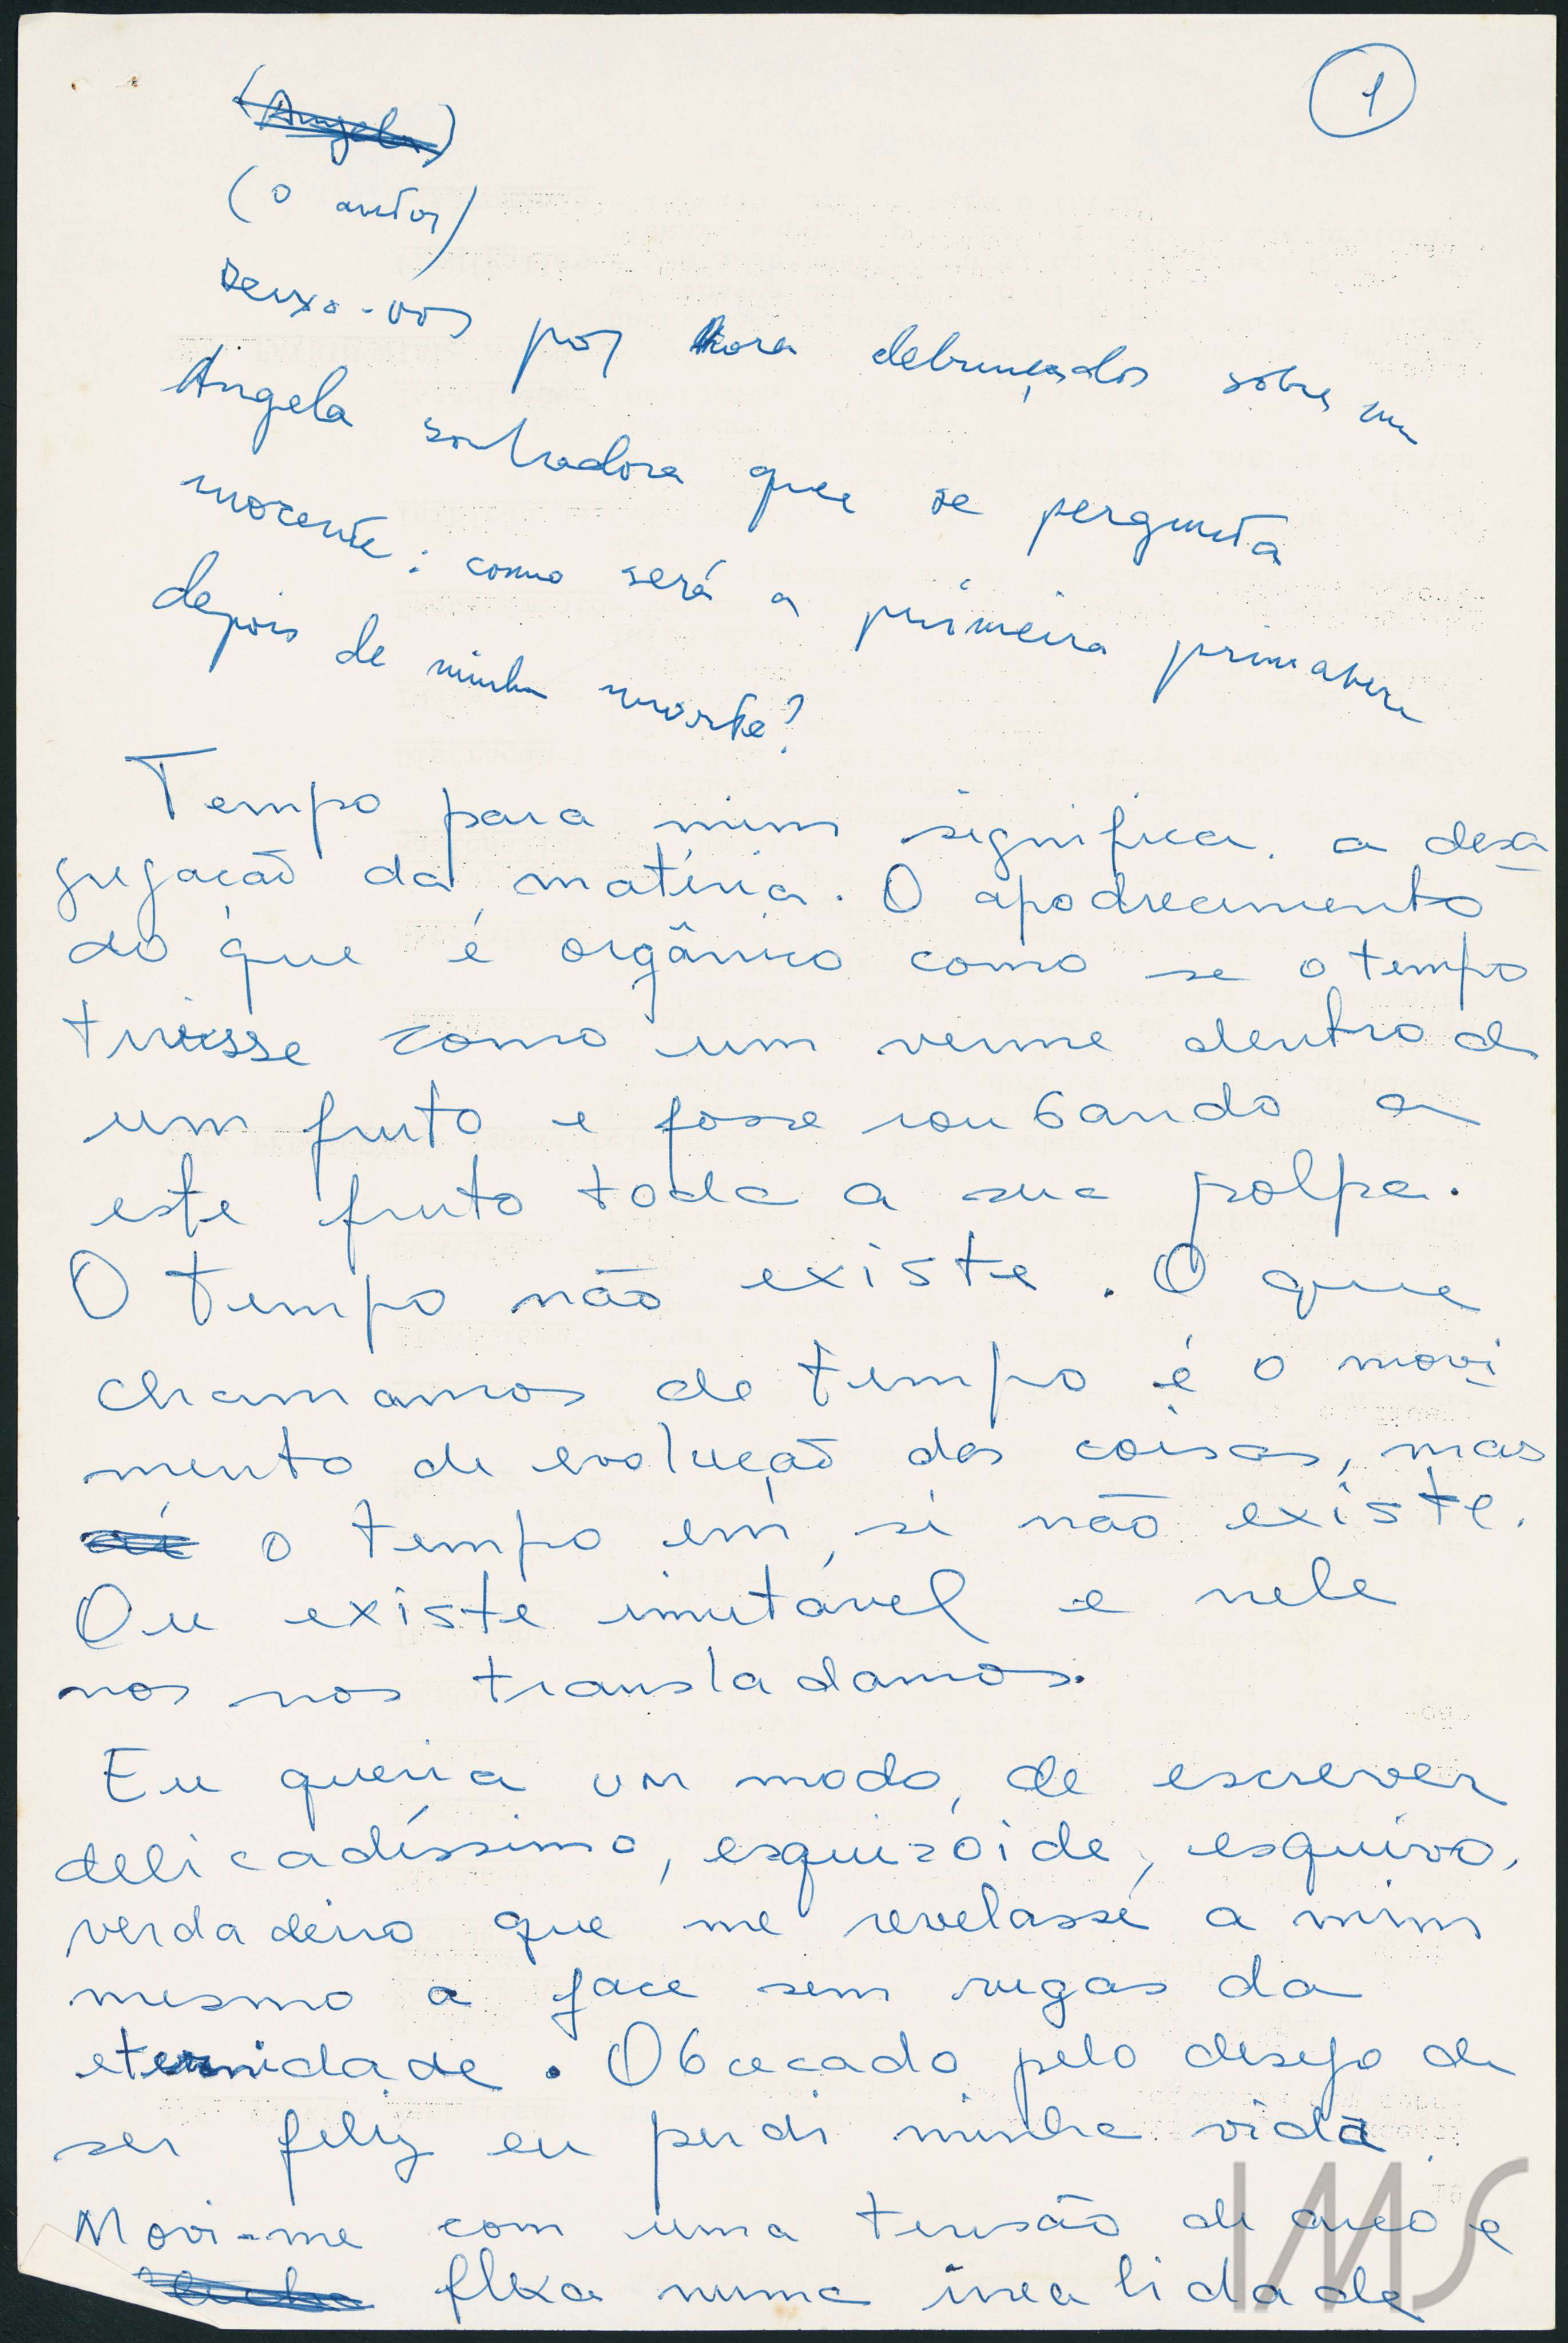 1
(Angela)
(O autor)
Deixo-vos por hora debruçados sobre uma
Angela sonhadora que se pergunta
inocente: como será a primeira primavera
depois de minha morte?
Tempo para mim significa a desa
gregação da matéria. O apodrecimento
do que é orgânico como se o tempo
tivesse como um verme dentro de
um fruto e fosse roubando a
este fruto toda a sua polpa.
O tempo não existe. O que
chamamos de tempo é o movi
mento de evolução das coisas, mas
o tempo em si não existe.
Ou existe imutável e nele
nos nos transladamos.
Eu queria um modo de escrever
delicadíssimo, esquizóide, esquivo,
verdadeiro que me revelasse a mim
mesmo a face sem rugas da
eternidade. Obcecado pelo desejo de
ser feliz eu perdi minha vida.
Movi-me com uma tensão de arco e
flexa numa irrealidade
IMS